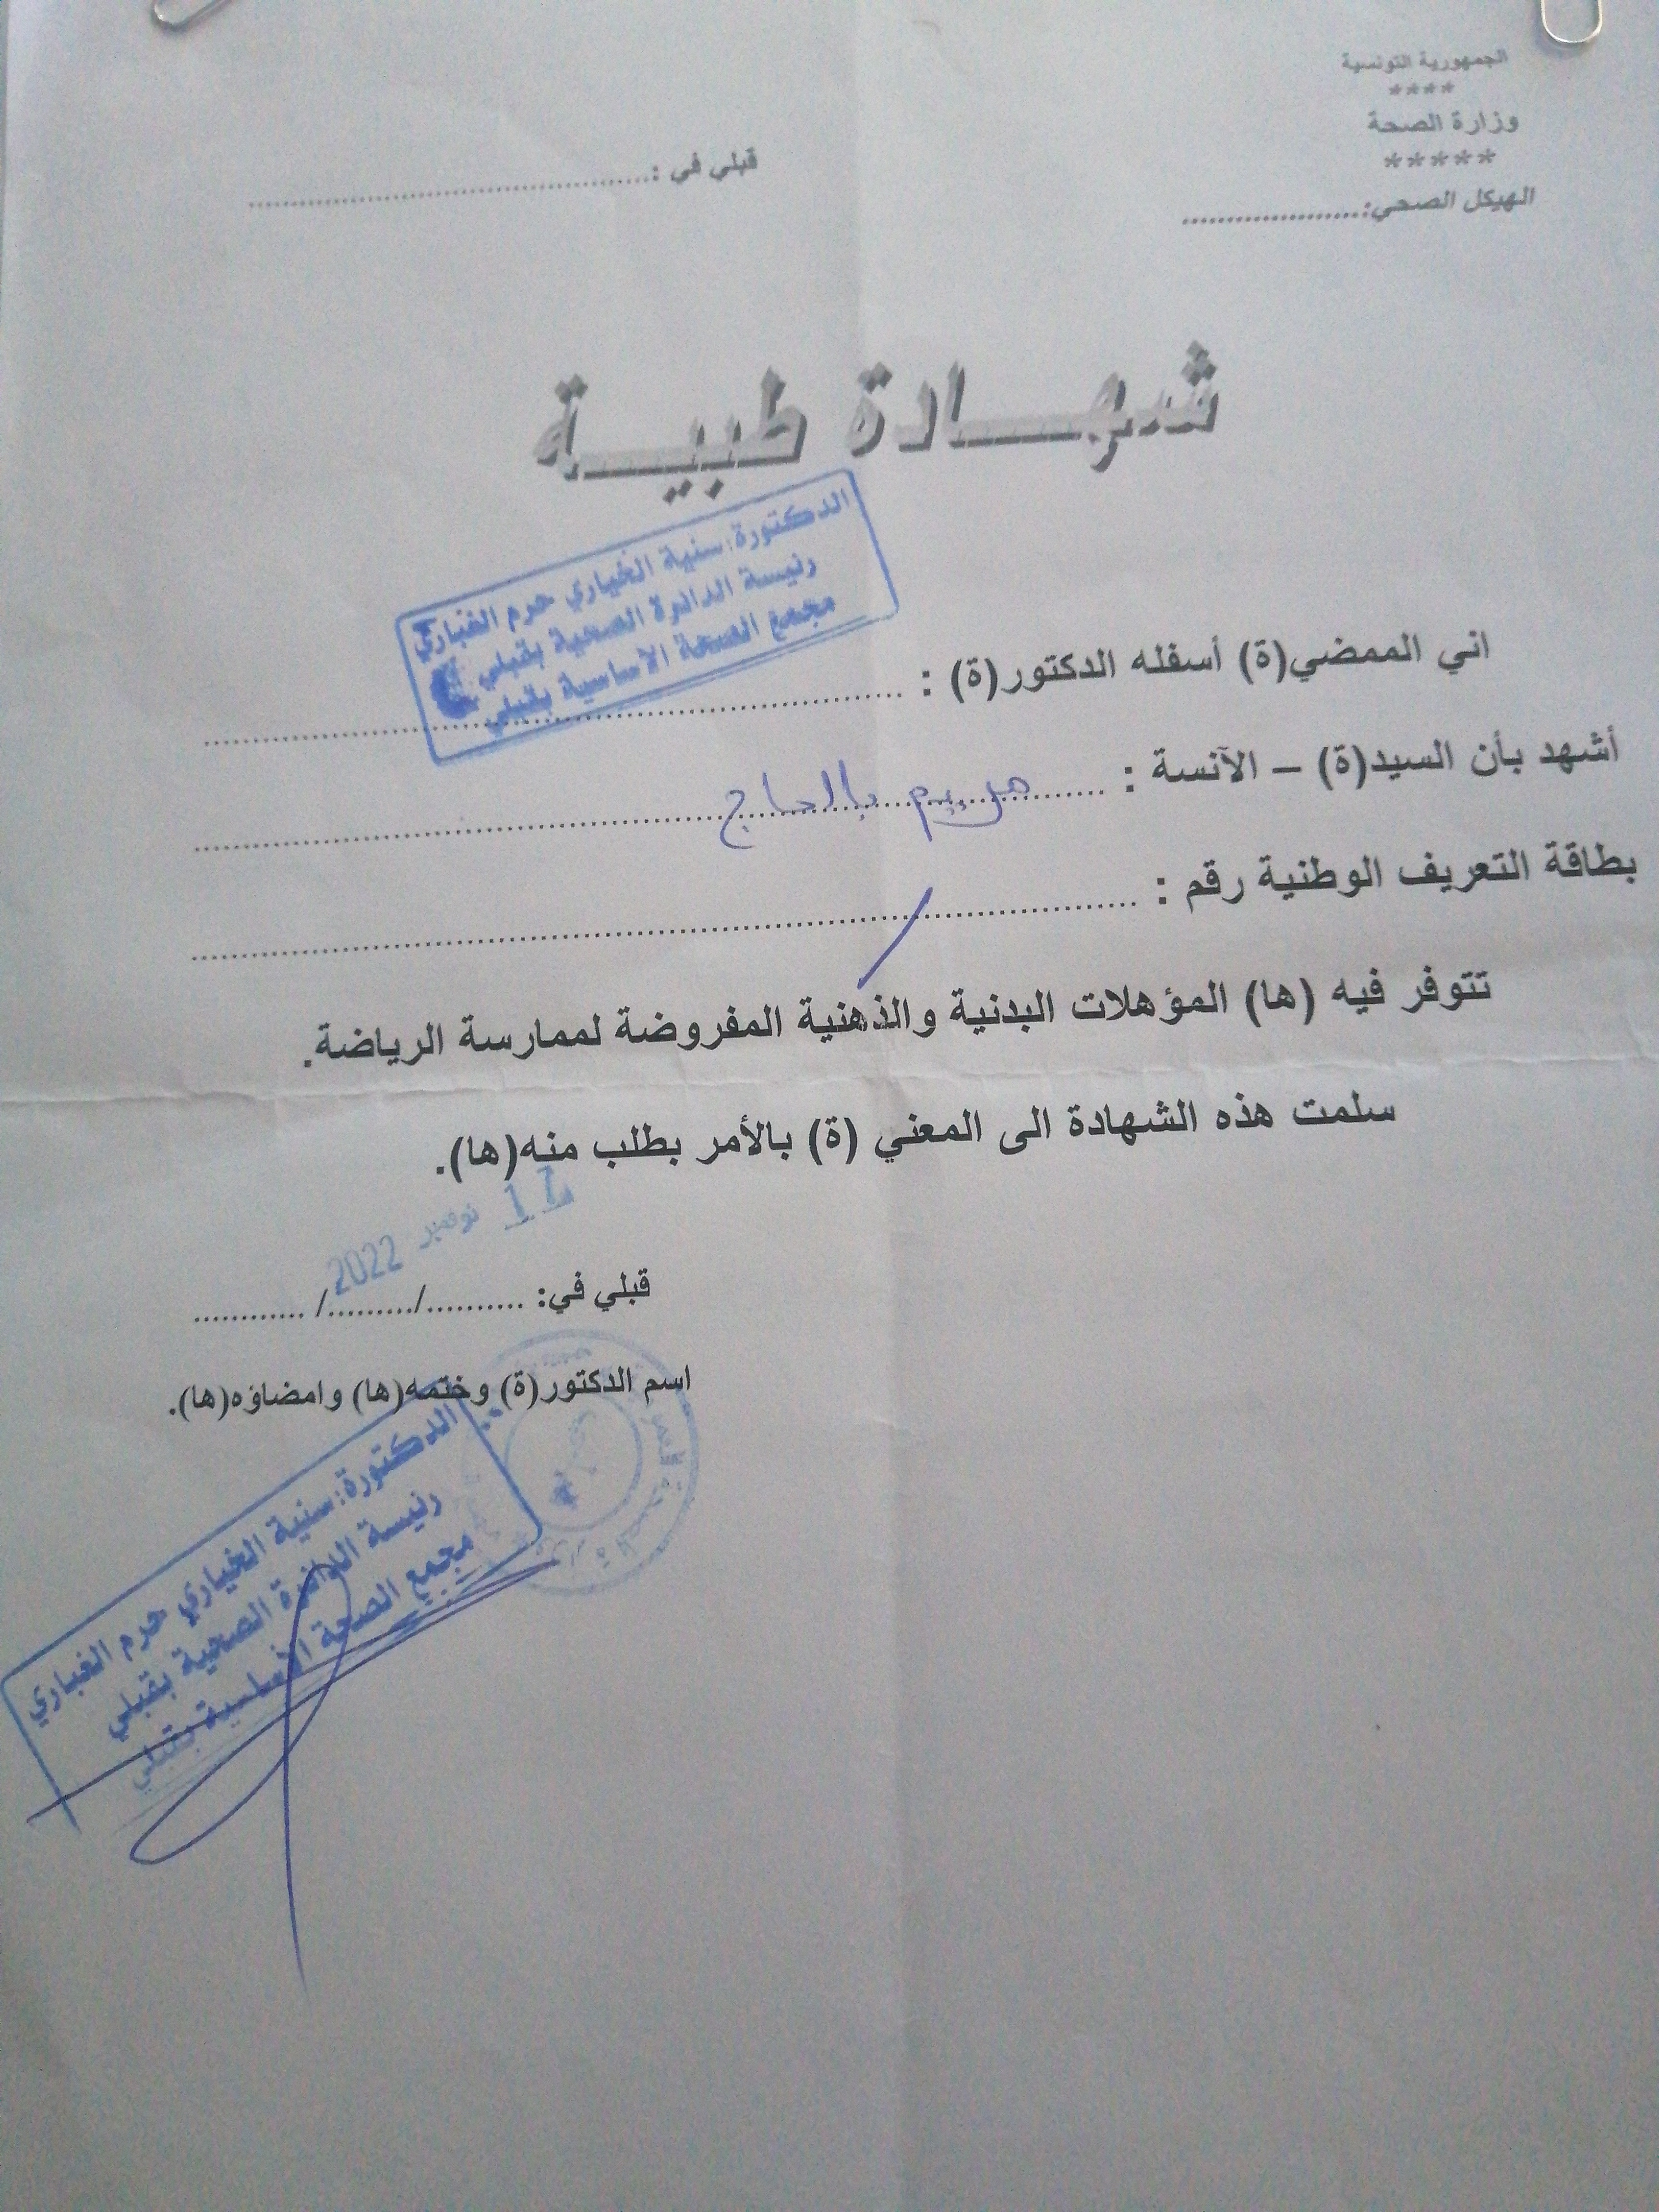 الجمهورية التونسية
****
وزارة الصحة
*****
الهيكل الصحي:....................
قبلي في :..........................................
شهـــادة طبيـــة
الدكتورة: سنية الخياري حرم الغباري
رئيسة الدائرة الصحية بقبلي
مجمع الصحة الأساسية بقبلي
اني الممضي(ة) أسفله الدكتور(ة) : ................................................
أشهد بأن السيد(ة) – الآنسة : مريم بالحاج
بطاقة التعريف الوطنية رقم : / ................................................
تتوفر فيه (ها) المؤهلات البدنية والذهنية المفروضة لممارسة الرياضة.
سلمت هذه الشهادة الى المعني (ة) بالأمر بطلب منه(ها).
17 نوفمبر 2022
قبلي في: ........../........./ ............
اسم الدكتور(ة) وختمه(ها) وامضاؤه(ها).
الدكتورة: سنية الخياري حرم الغباري
رئيسة الدائرة الصحية بقبلي
مجمع الصحة الأساسية بقبلي